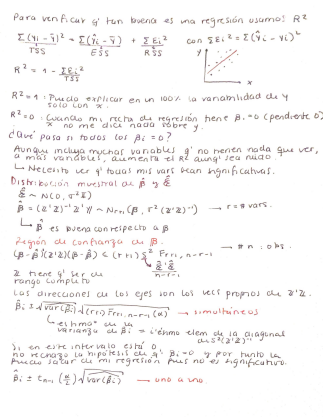 Para verificar q' tan buena es una regresión usamos: R²
Σ(yi - ȳ)² = Σ(ŷi - ȳ) + Σêi² con Σêi² = Σ(ŷi - yi)²
TSS ESS RSS
R² = 1 - Σêi² / TSS
y
x
R² = 1 : Puedo explicar en un 100% la variabilidad de y
solo con x.
R² = 0 : Cuando mi recta de regresión tiene β1 = 0 (pendiente 0)
x no me dice nada sobre y.
¿Qué pasa si todos los βi = 0?
Aunque incluya muchas variables q' no tienen nada que ver,
a más variables, aumenta el R² aunq' sea nudo.
↳ Necesito ver q' todas mis vars sean significativas.
Distribución muestral de β̂ y ε̂
ε̂ ~ N(0, σ²I)
β̂ = (Z'Z)⁻¹ Z'Y ~ Nr+1(β, σ²(Z'Z)⁻¹) → r = # vars.
↳ β̂ es buena con respecto a β
Región de confianza de β. → # n. obs.
(β - β̂)'(Z'Z)(β - β̂) ≤ (r+1) S² Fr+1, n-r-1
ε̂'ε̂ / n-r-1
Z tiene q' ser de
rango completo
Las direcciones de los ejes son los vecs propios de Z'Z.
β̂i ± √var(β̂i) √(r+1) Fr+1, n-r-1 (α) → simultáneos
↳ estima* de la
varianza de β̂i = i'ésimo elem de la diagonal
de S²(Z'Z)⁻¹
Si en este intervalo está 0,
no rechazo la hipótesis de q' βi = 0 y por tanto la
puedo sacar de mi regresión pus no es significativo.
β̂i ± tn-r-1 (α/2) √var(β̂i) → uno a uno.